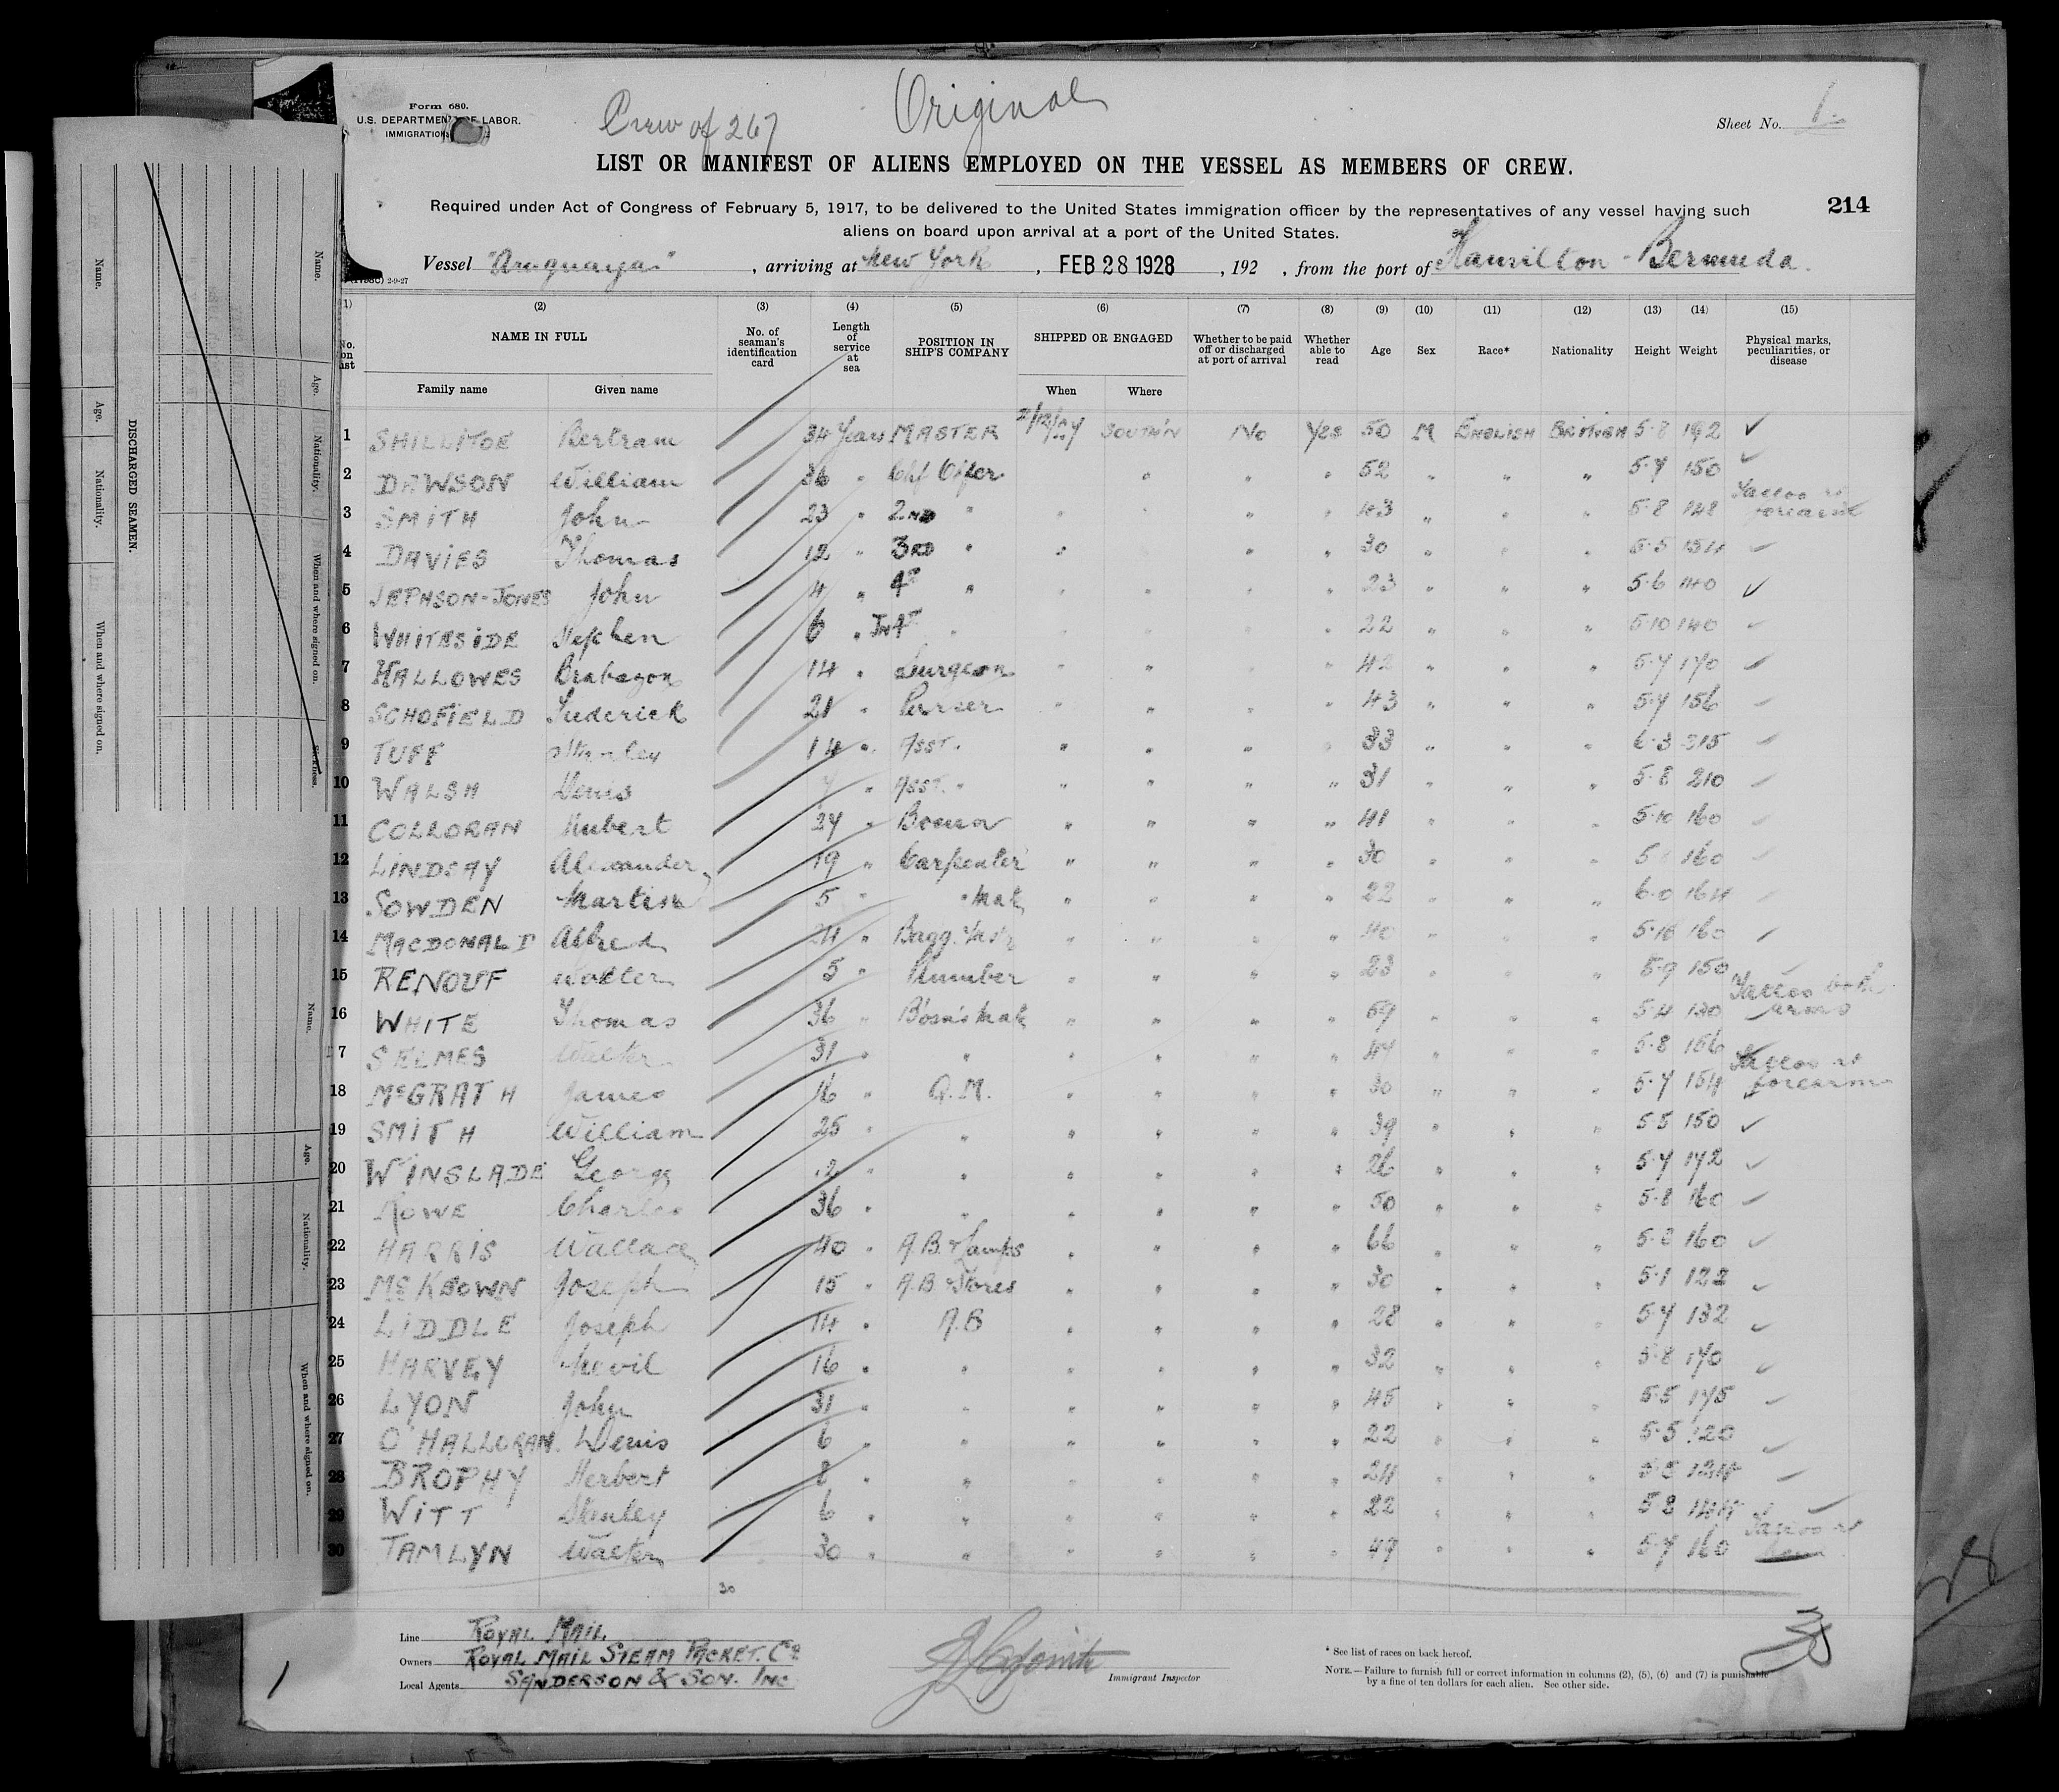 Form 680.
U.S. DEPARTMENT OF LABOR.
IMMIGRATION
Crew of 267
Original
Sheet No. 1.
LIST OR MANIFEST OF ALIENS EMPLOYED ON THE VESSEL AS MEMBERS OF CREW.
Required under Act of Congress of February 5, 1917, to be delivered to the United States immigration officer by the representatives of any vessel having such
aliens on board upon arrival at a port of the United States.
214
Vessel "Araguaya" , arriving at New York , FEB 28 1928 , 192 , from the port of Hamilton - Bermuda.
(2) (3) (4) (5) (6) (7) (8) (9) (10) (11) (12) (13) (14) (15)
No. on list NAME IN FULL No. of seaman's identification card Length of service at sea POSITION IN SHIP'S COMPANY SHIPPED OR ENGAGED Whether to be paid off or discharged at port of arrival Whether able to read Age Sex Race* Nationality Height Weight Physical marks, peculiarities, or disease
Family name Given name When Where
1 SHILLITOE Bertram 34 Years MASTER SOUTH'N No Yes 50 M ENGLISH BRITISH 5-8 192 ✓
2 DAWSON William 36 " 52 " " " 5-7 150 ✓
3 SMITH John 23 " 2ND " " " " " 43 " " " 5-8 148 Tattoo rt forearm
4 DAVIES Thomas 12 " 3RD " " " " 30 " " " 5-5 154 ✓
5 JEPHSON-JONES John 4 " 4T " " " " " 23 " " " 5-6 140 ✓
6 WHITESIDE Stephen 6 " " " " " " 22 " " " 5-10 140 ✓
7 HALLOWES Brabazon 14 " Surgeon " " " " 42 " " " 5-7 170 ✓
8 SCHOFIELD Frederick 21 " Purser " " " " 43 " " " 5-7 156 ✓
9 TUFF Stanley 14 " ASST. " " " " " 33 " " " 6-3 215 ✓
10 WALSH Denis " ASST. " " " " " 31 " " " 5-8 210 ✓
11 COLLORAN Hubert 27 " " " " " 41 " " " 5-10 160 ✓
12 LINDSAY Alexander 19 " Carpenter " " " " 30 " " " 160 ✓
13 SOWDEN Martin 5 " " Mate " " " " 22 " " " 6-0 164 ✓
14 MACDONALD Alfred 24 " " " " " 40 " " " 5-10 160 ✓
15 RENOUF Walter 5 " Plumber " " " " 23 " " " 5-9 150 ✓
16 WHITE Thomas 36 " Bosn's Mate " " " " 59 " " " 5-4 130 Tattoo both arms
17 SELMES Walter 31 " " " " " " 47 " " " 5-8 156 ✓
18 McGRATH James 16 " Q.M. " " " " 30 " " " 5-7 154 Tattoo rt forearm
19 SMITH William 25 " " " " " " 39 " " " 5-5 150 ✓
20 WINSLADE George 12 " " " " " " 26 " " " 5-7 172 ✓
21 ROWE Charles 36 " " " " " " 50 " " " 5-8 160 ✓
22 HARRIS Wallace 40 " A.B. & Lamps " " " " 66 " " " 160 ✓
23 McKEOWN Joseph 15 " A.B. Stores " " " " 30 " " " 5-1 122 ✓
24 LIDDLE Joseph 14 " A.B " " " " 28 " " " 5-7 132 ✓
25 HARVEY Nevil 16 " " " " " " 32 " " " 5-8 170 ✓
26 LYON John 31 " " " " " " 45 " " " 5-5 175 ✓
27 O'HALLORAN. Denis 6 " " " " " " 22 " " " 5-5 120 ✓
28 BROPHY Herbert 8 " " " " " " 24 " " " 124 ✓
29 WITT Stanley 6 " " " " " " 22 " " " 5-8 144 ✓
30 TAMLYN Walter 30 " " " " " " 49 " " " 5-7 160 Tattoo rt
30
Line Royal Mail
Owners Royal Mail Steam Packet. Co.
Local Agents Sanderson & Son. Inc
Immigrant Inspector
* See list of races on back hereof.
NOTE.—Failure to furnish full or correct information in columns (2), (5), (6) and (7) is punishable
by a fine of ten dollars for each alien. See other side.
DISCHARGED SEAMEN.
Name. Age. Nationality. When and where signed on.
Name. Age. Nationality. When and where signed on. Sickness.
Name. Age. Nationality. When and where signed on.